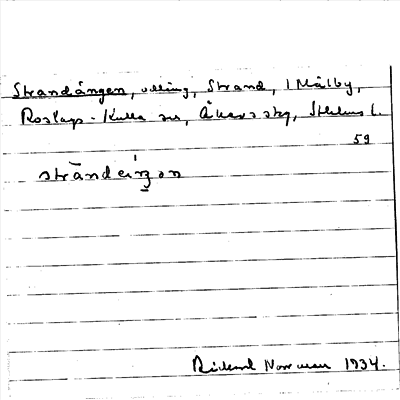 Strandängen, utäng, Strand, 1 Målby,
Roslags-Kulla sn, Åkers skg, Sthlms l.
59
strāndeiŋən
Rickard Norrman 1934.